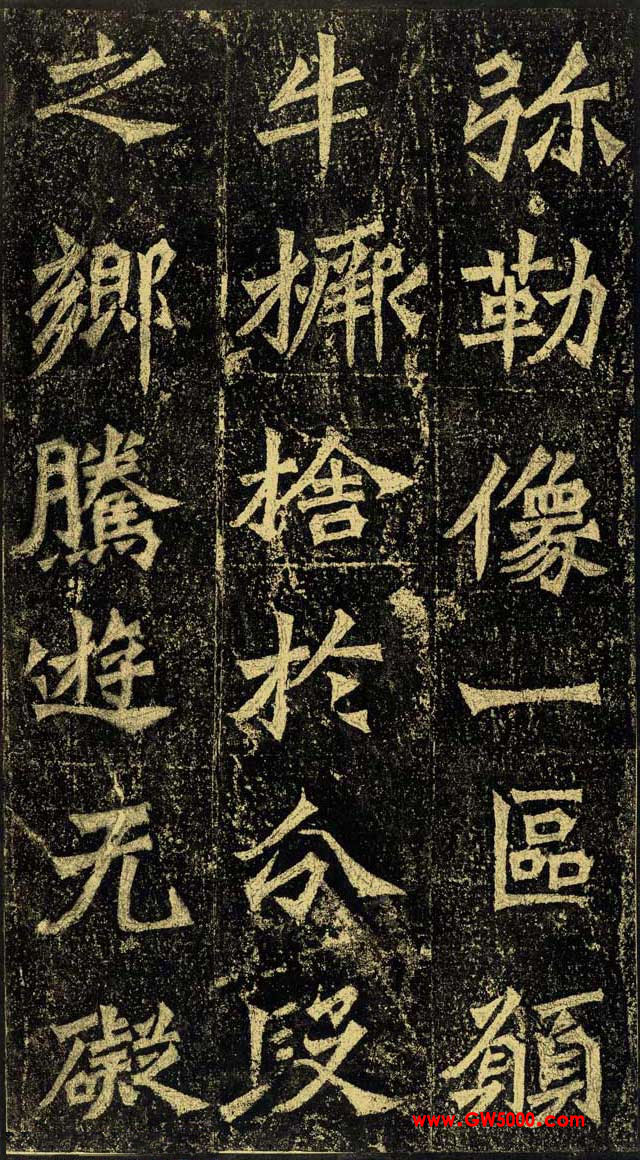 弥勒像一區願
牛橛捨於分段
之鄉騰遊无礙
www.GW5000.com